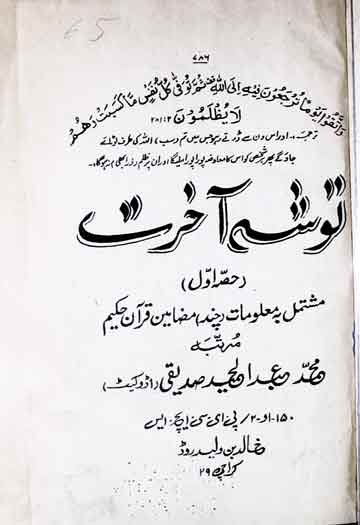 ۷۸۶
وَاتَّقُوْا يَوْمًا تُرْجَعُوْنَ فِيْهِ اِلَى اللّٰهِ ثُمَّ تُوَفّٰى كُلُّ نَفْسٍ مَّا كَسَبَتْ وَهُمْ
لَا يُظْلَمُوْنَ ۲۸۱:۲
ترجمہ:۔ اور اس دن سے ڈرتے رہو جس میں تم (سب) اللہ کی طرف لوٹائے
جاؤگے پھر ہر شخص کو اس کا معاوضہ پورا پورا ملیگا اور ان پر ظلم (ذرا بھی) نہ ہوگا۔
توشہ آخرت
(حصہ اوّل)
مشتمل بہ معلومات (چند) مضامین قرآن حکیم
مرتبہ
محمد عبدالحمید صدیقی (ایڈوکیٹ)
۱۵۰۔او۔۲/ پی ای سی ایچ۔ ایس
خالد بن ولید روڈ
کراچی ۲۹